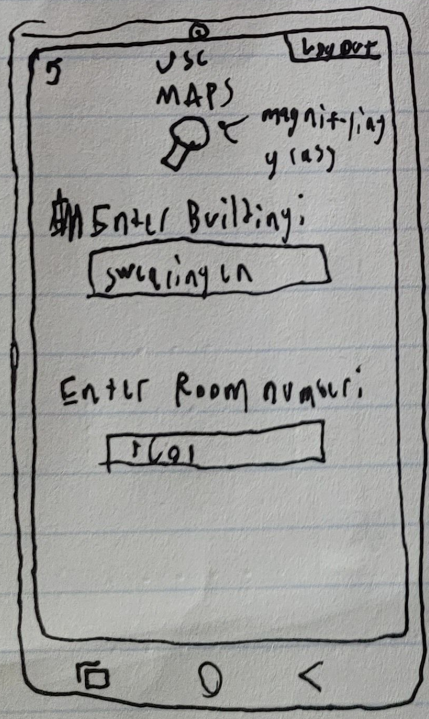 5
USC
Log out
MAPS
magnifying
glass
Enter Building:
swearingen
Enter Room number: